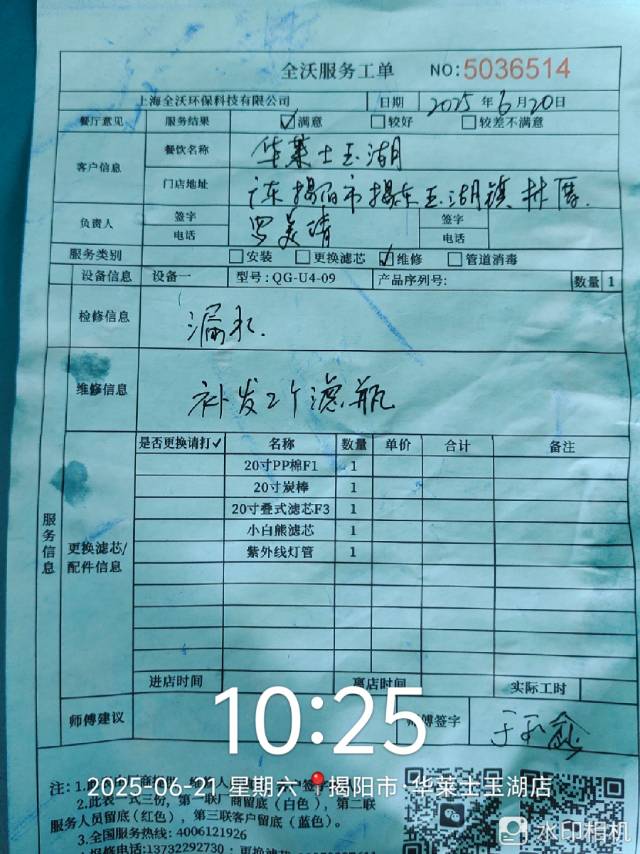 全沃服务工单 NO:5036514
上海全沃环保科技有限公司 日期 2025年6月20日
餐厅意见 服务结果 ☑满意 □较好 □较差不满意
客户信息 餐饮名称 华莱士玉湖
门店地址 广东揭阳市揭东玉湖镇林厝.
负责人 签字 罗美靖 签字
电话 电话
服务类别 □安装 □更换滤芯 ☑维修 □管道消毒
设备信息 设备一 型号:QG-U4-09 产品序列号: 数量 1
检修信息 漏水.
维修信息 补发2个滤瓶
服务信息
更换滤芯/配件信息
是否更换请打✓ 名称 数量 单价 合计 备注
20寸PP棉F1 1
20寸炭棒 1
20寸叠式滤芯F3 1
小白熊滤芯 1
紫外线灯管 1
进店时间 离店时间 实际工时
师傅建议 师傅签字
10:25
2025-06-21 星期六 揭阳市·华莱士玉湖店
注:1.
2.此表一式三份,第一联厂商留底(白色),第二联
服务人员留底(红色),第三联客户留底(蓝色)。
3.全国服务热线:4006121926
报修电话:13732292730
水印相机